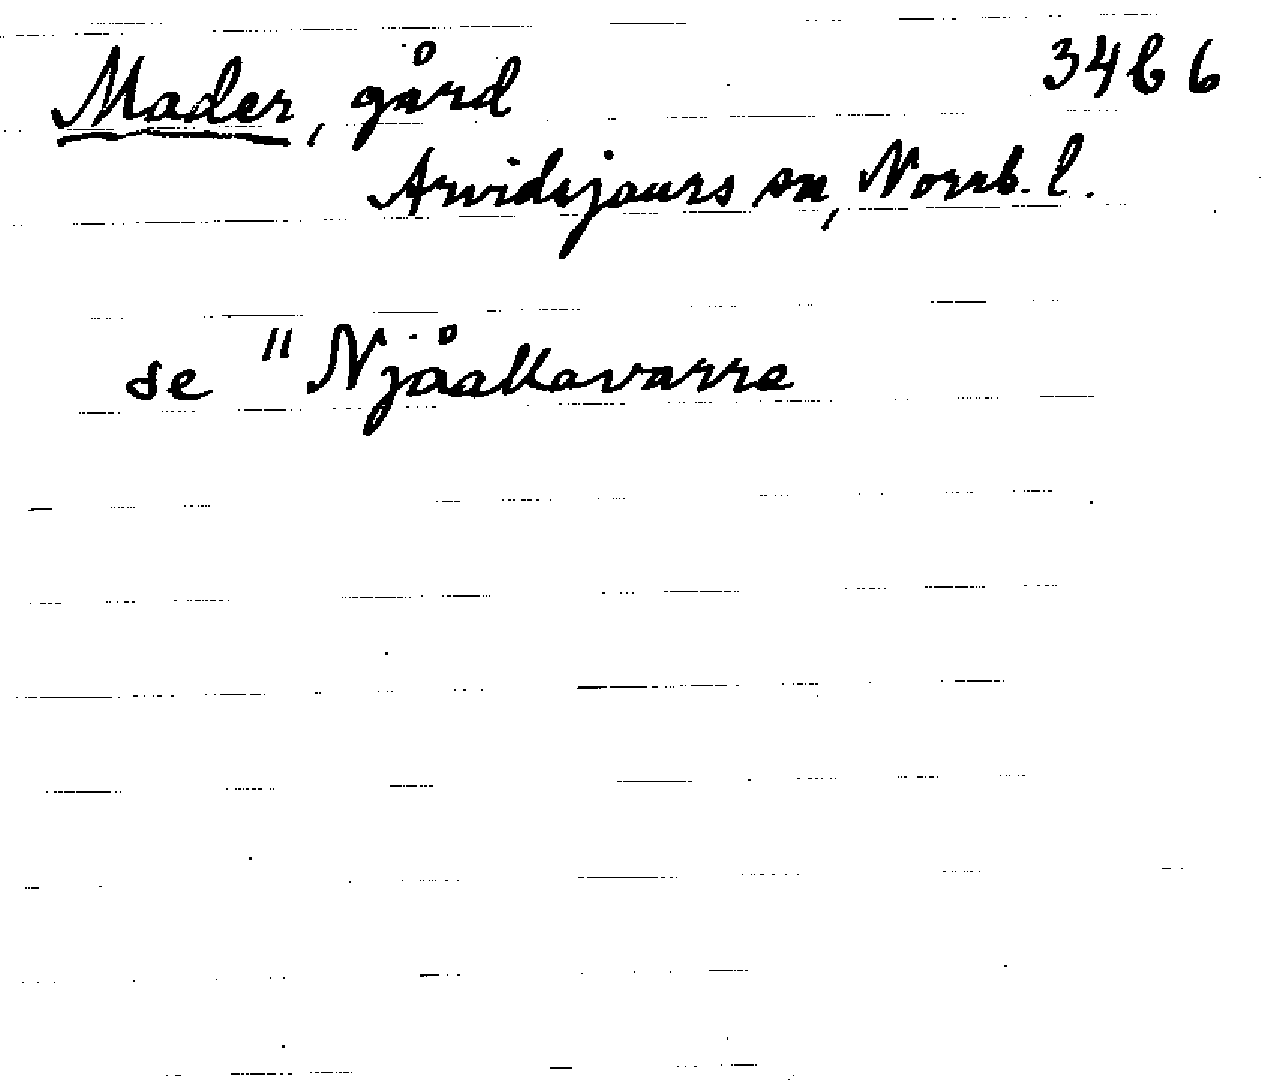 Mader, gård 34b6
Arvidsjaurs sn, Norrb. l.
se "Njåallavarre